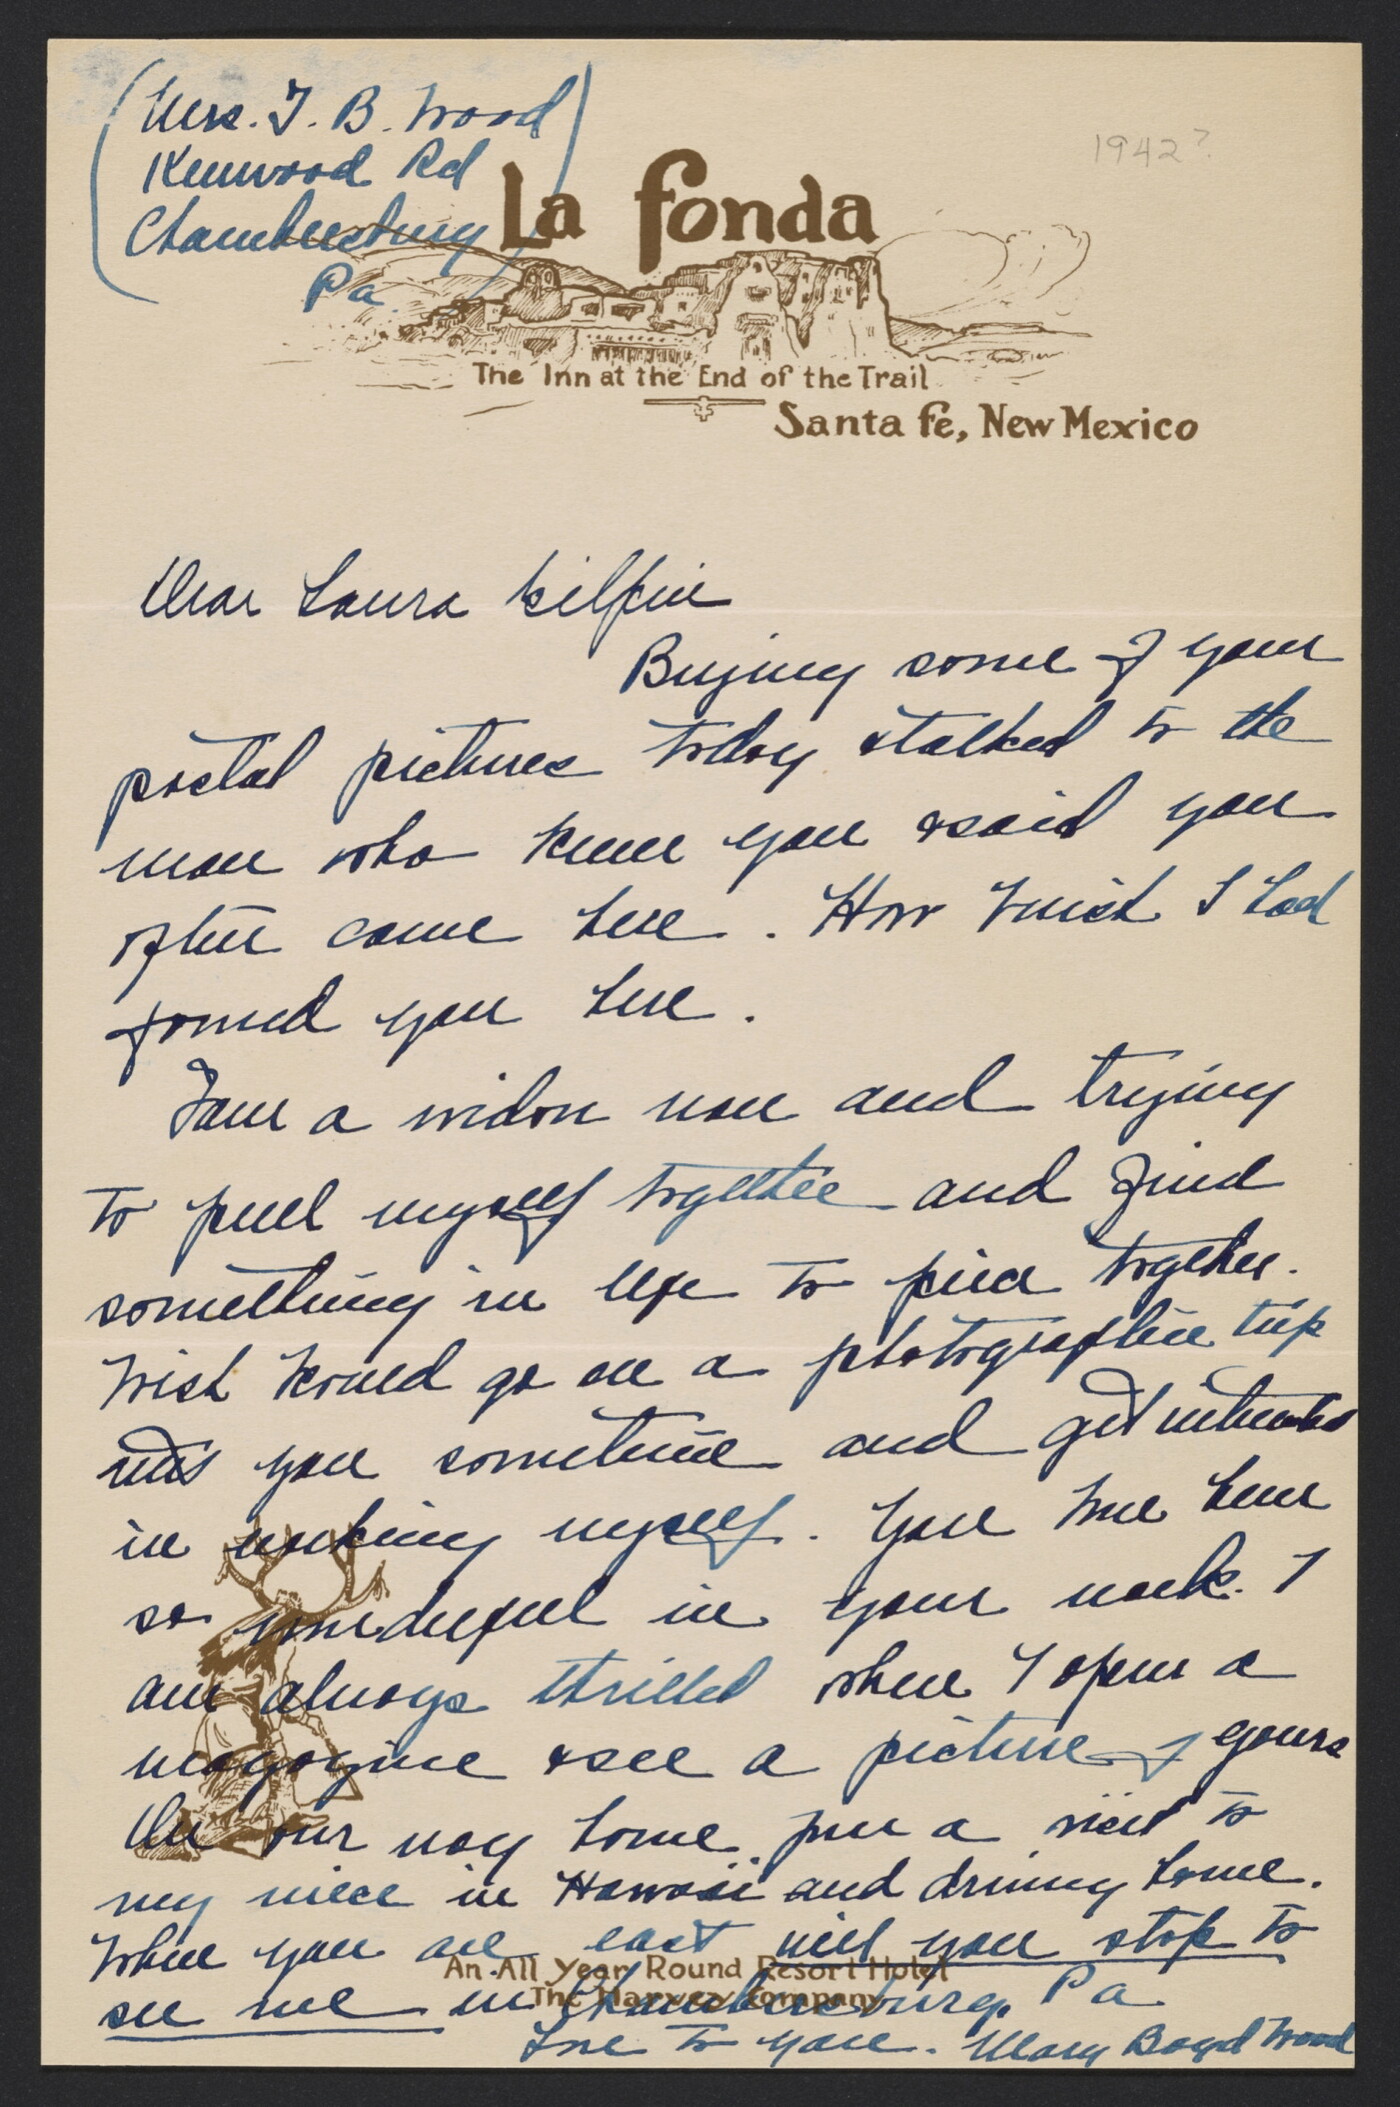 (Mrs. T. B. Wood
Kenwood Rd
Chambersburg
Pa)
1942?
La Fonda
The Inn at the End of the Trail
Santa Fe, New Mexico
Dear Laura Gilpin
Buying some of your
postal pictures today & talked to the
man who knew you & said you
often came here. How I wish I had
found you here.
I am a widow now and trying
to pull myself together and find
something in life to piece together.
Wish I could go on a photographic trip
with you sometime and get interested
in working myself. You have been
so wonderful in your work. I
am always thrilled when I open a
magazine & see a picture of yours
On our way home from a visit to
my niece in Hawaii and driving home.
When you are east will you stop to
see me in Chambersburg, Pa
Love to you. Mary Boyd Wood
An All Year Round Resort Hotel
The Harvey Company